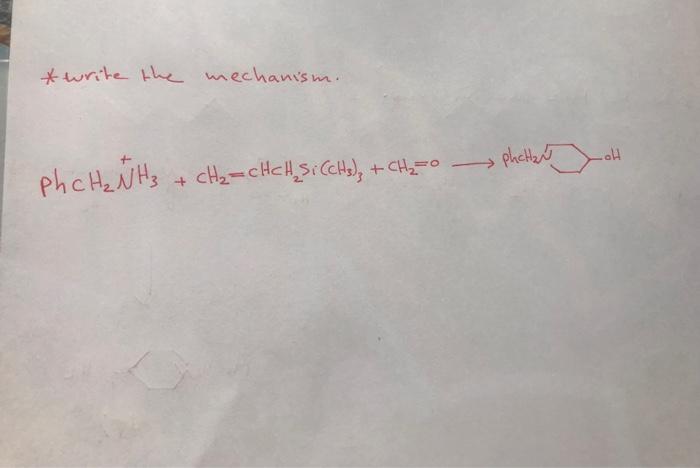 * write the mechanism.
PhCH₂N⁺H₃ + CH₂=CHCH₂Si(CH₃)₃ + CH₂=O ⟶ PhCH₂N OH